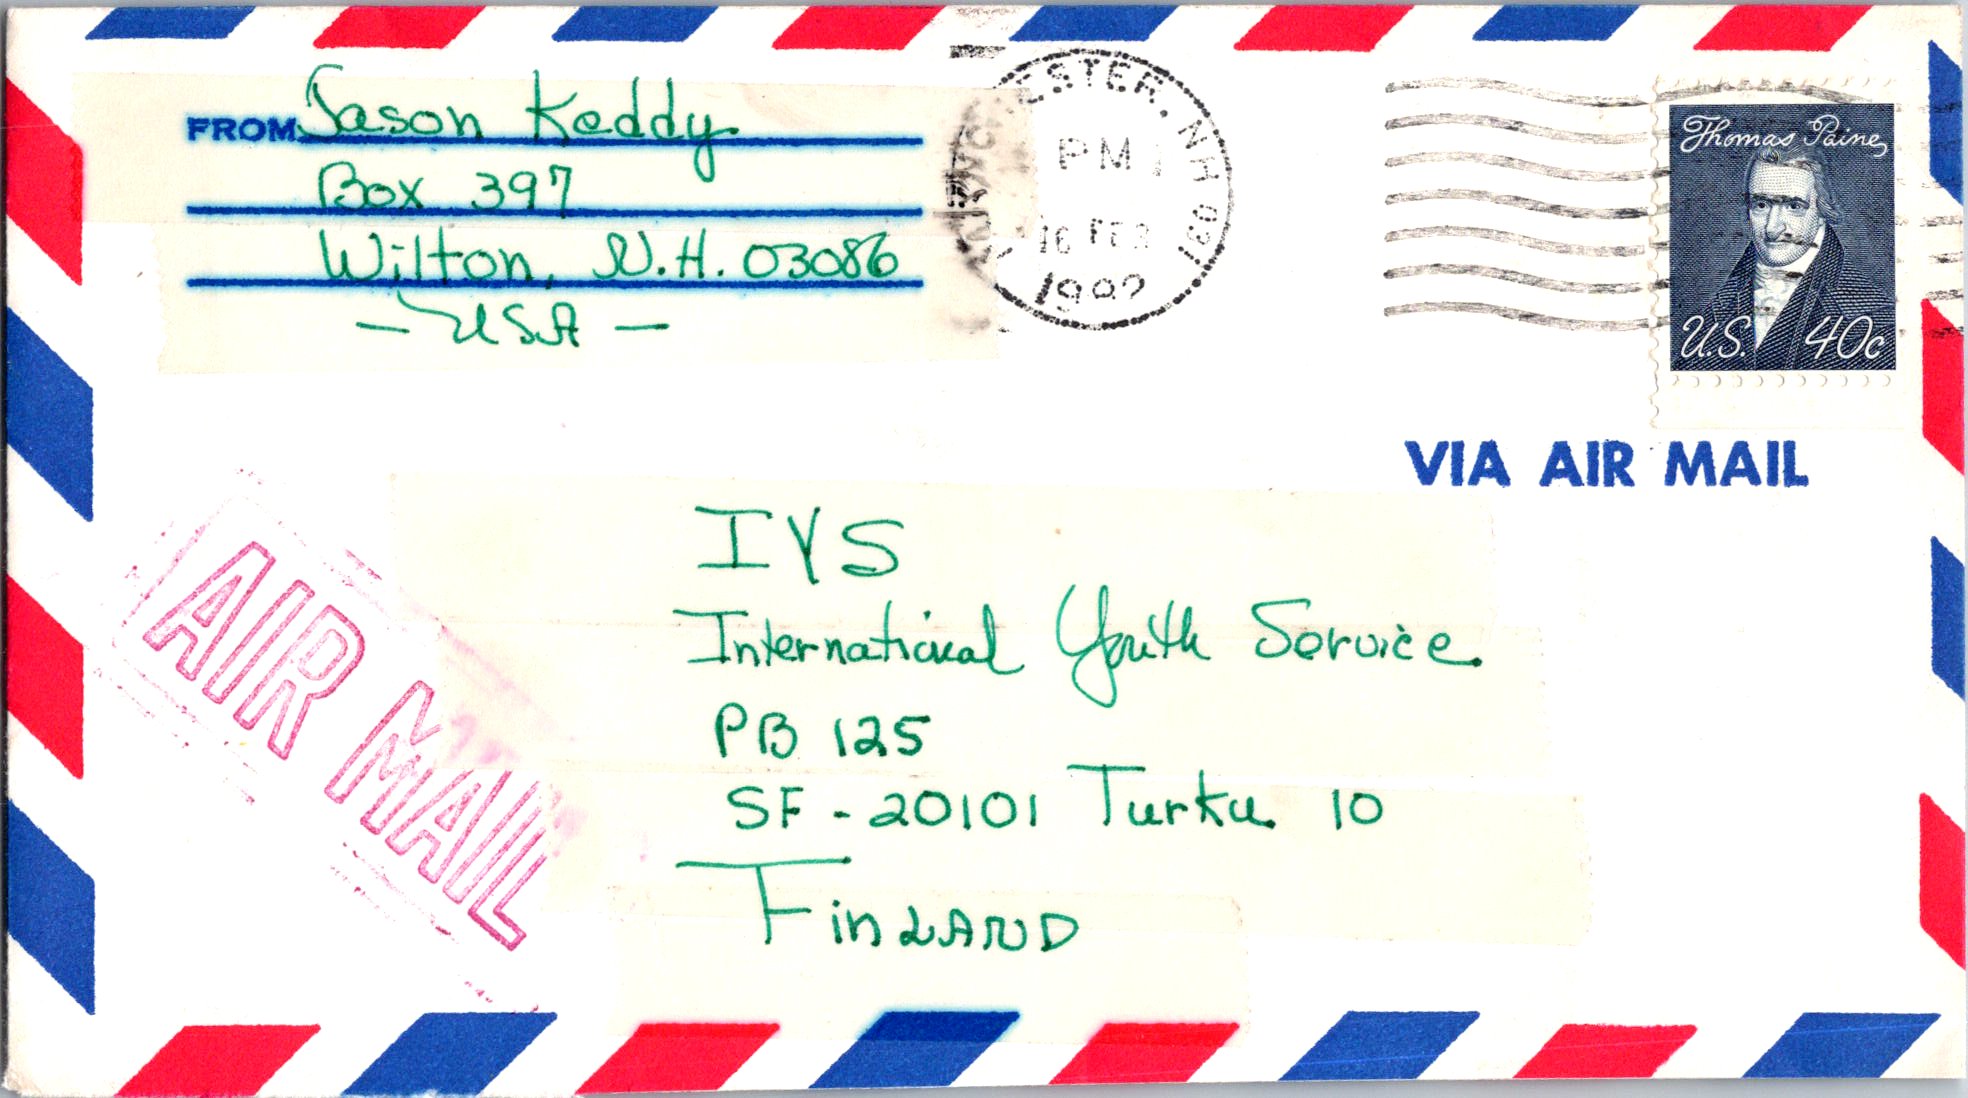 FROM Jason Keddy
Box 397
Wilton, N.H. 03086
- USA -
MANCHESTER, NH 031
PM
16 FEB
1982
Thomas Paine
U.S. 40c
VIA AIR MAIL
AIR MAIL
IYS
International Youth Service
PB 125
SF - 20101 Turku 10
FinLAND